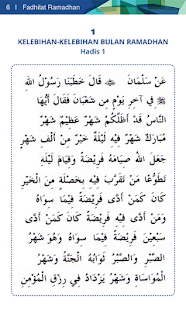 6 | Fadhilat Ramadhan
1
KELEBIHAN-KELEBIHAN BULAN RAMADHAN
Hadis 1
عَنْ سَلْمَانَ ﷺ قَالَ خَطَبَنَا رَسُوْلُ اللهِ
ﷺ فِي آخِرِ يَوْمٍ مِنْ شَعْبَانَ فَقَالَ يٰأَيُّهَا
النَّاسُ قَدْ أَظَلَّكُمْ شَهْرٌ عَظِيْمٌ شَهْرٌ
مُبَارَكٌ شَهْرٌ فِيْهِ لَيْلَةٌ خَيْرٌ مِنْ أَلْفِ شَهْرٍ
جَعَلَ اللهُ صِيَامَهُ فَرِيْضَةً وَقِيَامَ لَيْلِهِ
تَطَوُّعًا مَنْ تَقَرَّبَ فِيْهِ بِخَصْلَةٍ مِنَ الْخَيْرِ
كَانَ كَمَنْ أَدّٰى فَرِيْضَةً فِيْمَا سِوَاهُ
وَمَنْ أَدّٰى فَرِيْضَةً فِيْهِ كَانَ كَمَنْ أَدّٰى
سَبْعِيْنَ فَرِيْضَةً فِيْمَا سِوَاهُ وَهُوَ شَهْرُ
الصَّبْرِ وَالصَّبْرُ ثَوَابُهُ الْجَنَّةُ وَشَهْرُ
الْمُوَاسَاةِ وَشَهْرٌ يَزْدَادُ فِي رِزْقِ الْمُؤْمِنِ